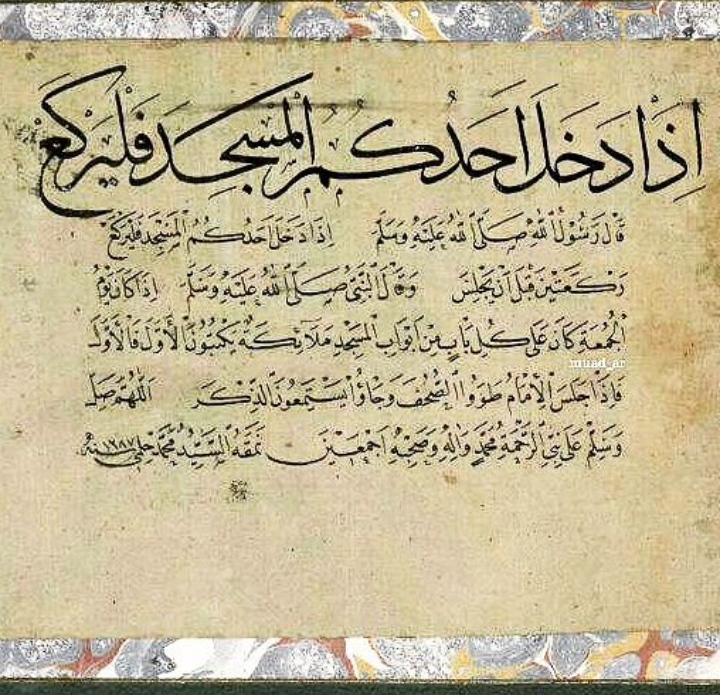 اِذَا دَخَلَ اَحَدُكُمُ الْمَسْجِدَ فَلْيَرْكَعْ
قَالَ رَسُولُ اللّٰهِ صَلَّى اللّٰهُ عَلَيْهِ وَسَلَّمَ اِذَا دَخَلَ اَحَدُكُمُ الْمَسْجِدَ فَلْيَرْكَعْ
رَكْعَتَيْنِ قَبْلَ اَنْ يَجْلِسَ وَقَالَ النَّبِىُّ صَلَّى اللّٰهُ عَلَيْهِ وَسَلَّمَ اِذَا كَانَ يَوْمُ
الْجُمُعَةِ كَانَ عَلَى كُلِّ بَابٍ مِنْ اَبْوَابِ الْمَسْجِدِ مَلَآئِكَةٌ يَكْتُبُونَ الْأَوَّلَ فَالْأَوَّلَ
muad_ar
فَاِذَا جَلَسَ الْاِمَامُ طَوَوُا الصُّحُفَ وَجَاؤُا يَسْتَمِعُونَ الذِّكْرَ اَللّٰهُمَّ صَلِّ
وَسَلِّمْ عَلَى نَبِىِّ الرَّحْمَةِ مُحَمَّدٍ وَاٰلِهِ وَصَحْبِهِ اَجْمَعِينَ نَمَقَهُ السَّيِّدُ مُحَمَّدْ حِلْمِى سنه ١٢٨٧